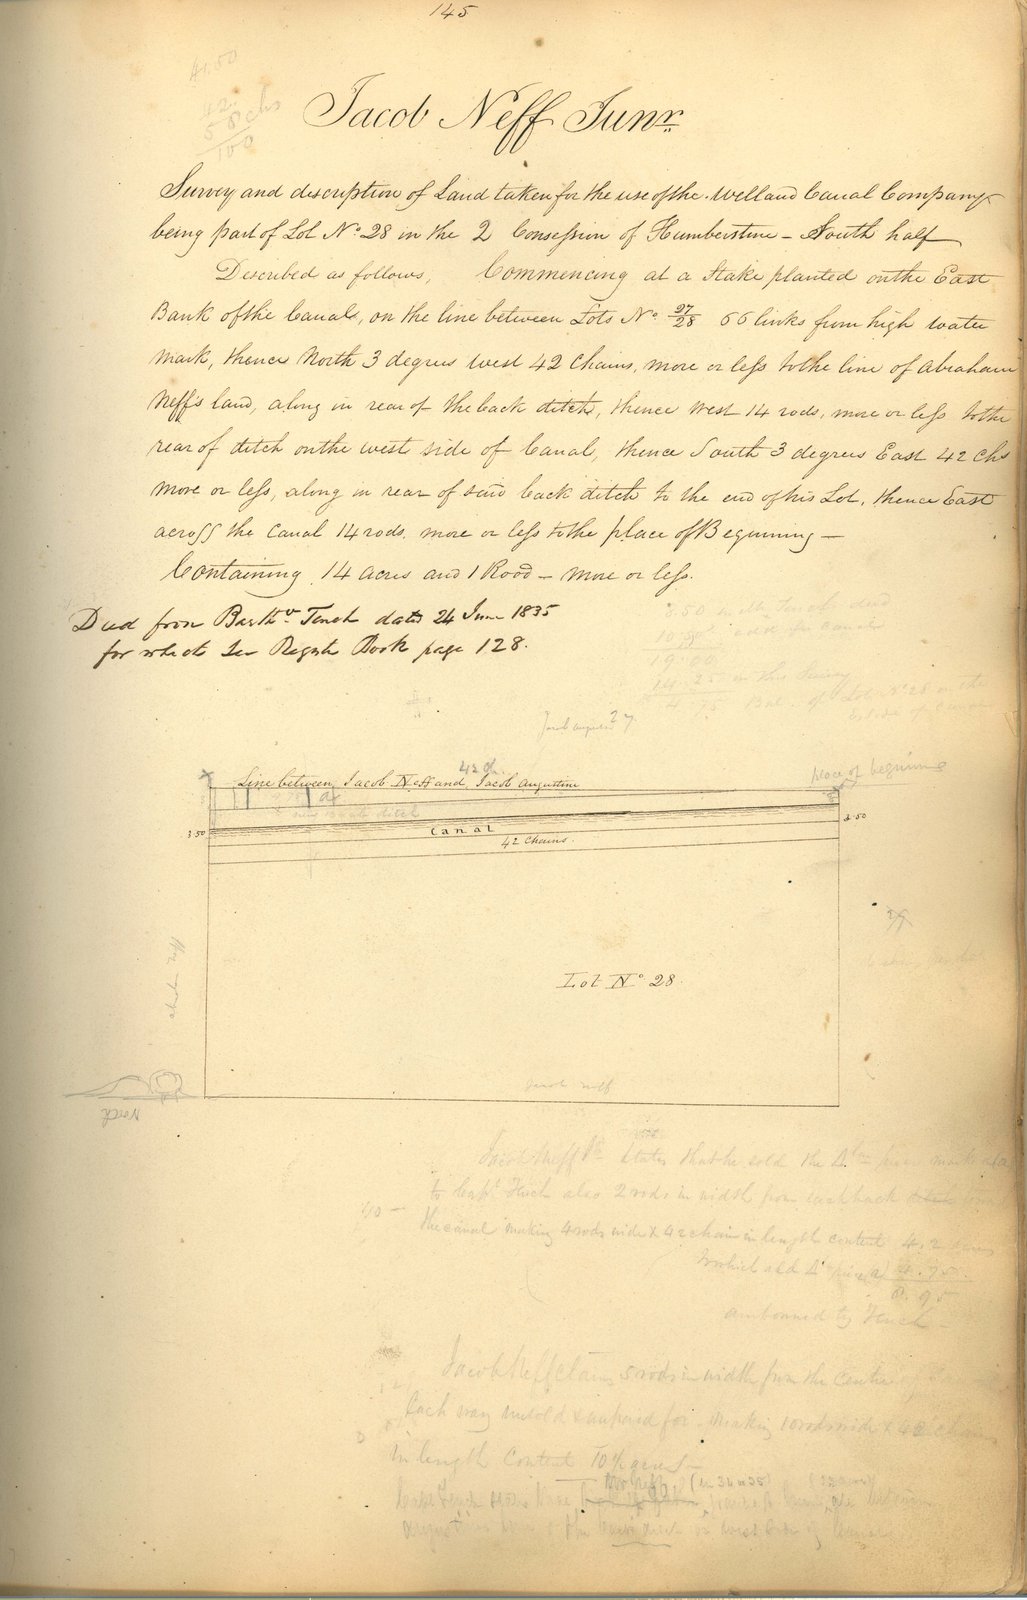 145
41.50
42
58 chs
100
Jacob Neff Junr.
Survey and description of Land taken for the use of the Welland Canal Company
being part of Lot No. 28 in the 2 Consession of Humberstone - South half
Described as follows, Commencing at a Stake planted on the East
Bank of the Canal, on the line between Lots No. 27/28 66 links from high water
mark, thence North 3 degrees West 42 Chains, more or less to the line of Abraham
Neff's land, along in rear of the back ditch, thence West 14 rods, more or less to the
rear of ditch on the west side of Canal, thence South 3 degrees East 42 Chs
more or less, along in rear of said back ditch to the end of his Lot, thence East
across the Canal 14 rods, more or less to the place of Beginning -
Containing 14 acres and 1 Rood - more or less.
Deed from Barthw. Tench dated 24 June 1835
for which See Registr Book page 128.
3.50 in the Tench deed
19.00
14.25 in this Survey
4.75 Bal. of Lot No. 28 on the
East side of Canal
Jacob Augustine 27
42 ch.
Line between Jacob Neff and Jacob Augustine
place of beginning
new back ditch
3.50
Canal
3.50
42 Chains.
Lot No. 28.
Jacob Neff
North
Jacob Neff Jr. States that he sold the
to Capt. Tench also 2 rods in width from each back
the canal making 4 rods wide x 42 chain in length content 4.2 acres
to which add 4.75
8.95
owned by Tench -
Jacob Neff claims 5 rods in width from the Centre of Canal
Each way unsold & unpaid for making 10 rods wide x 42 chains
in length Content 10½ acres -
Capt Tench